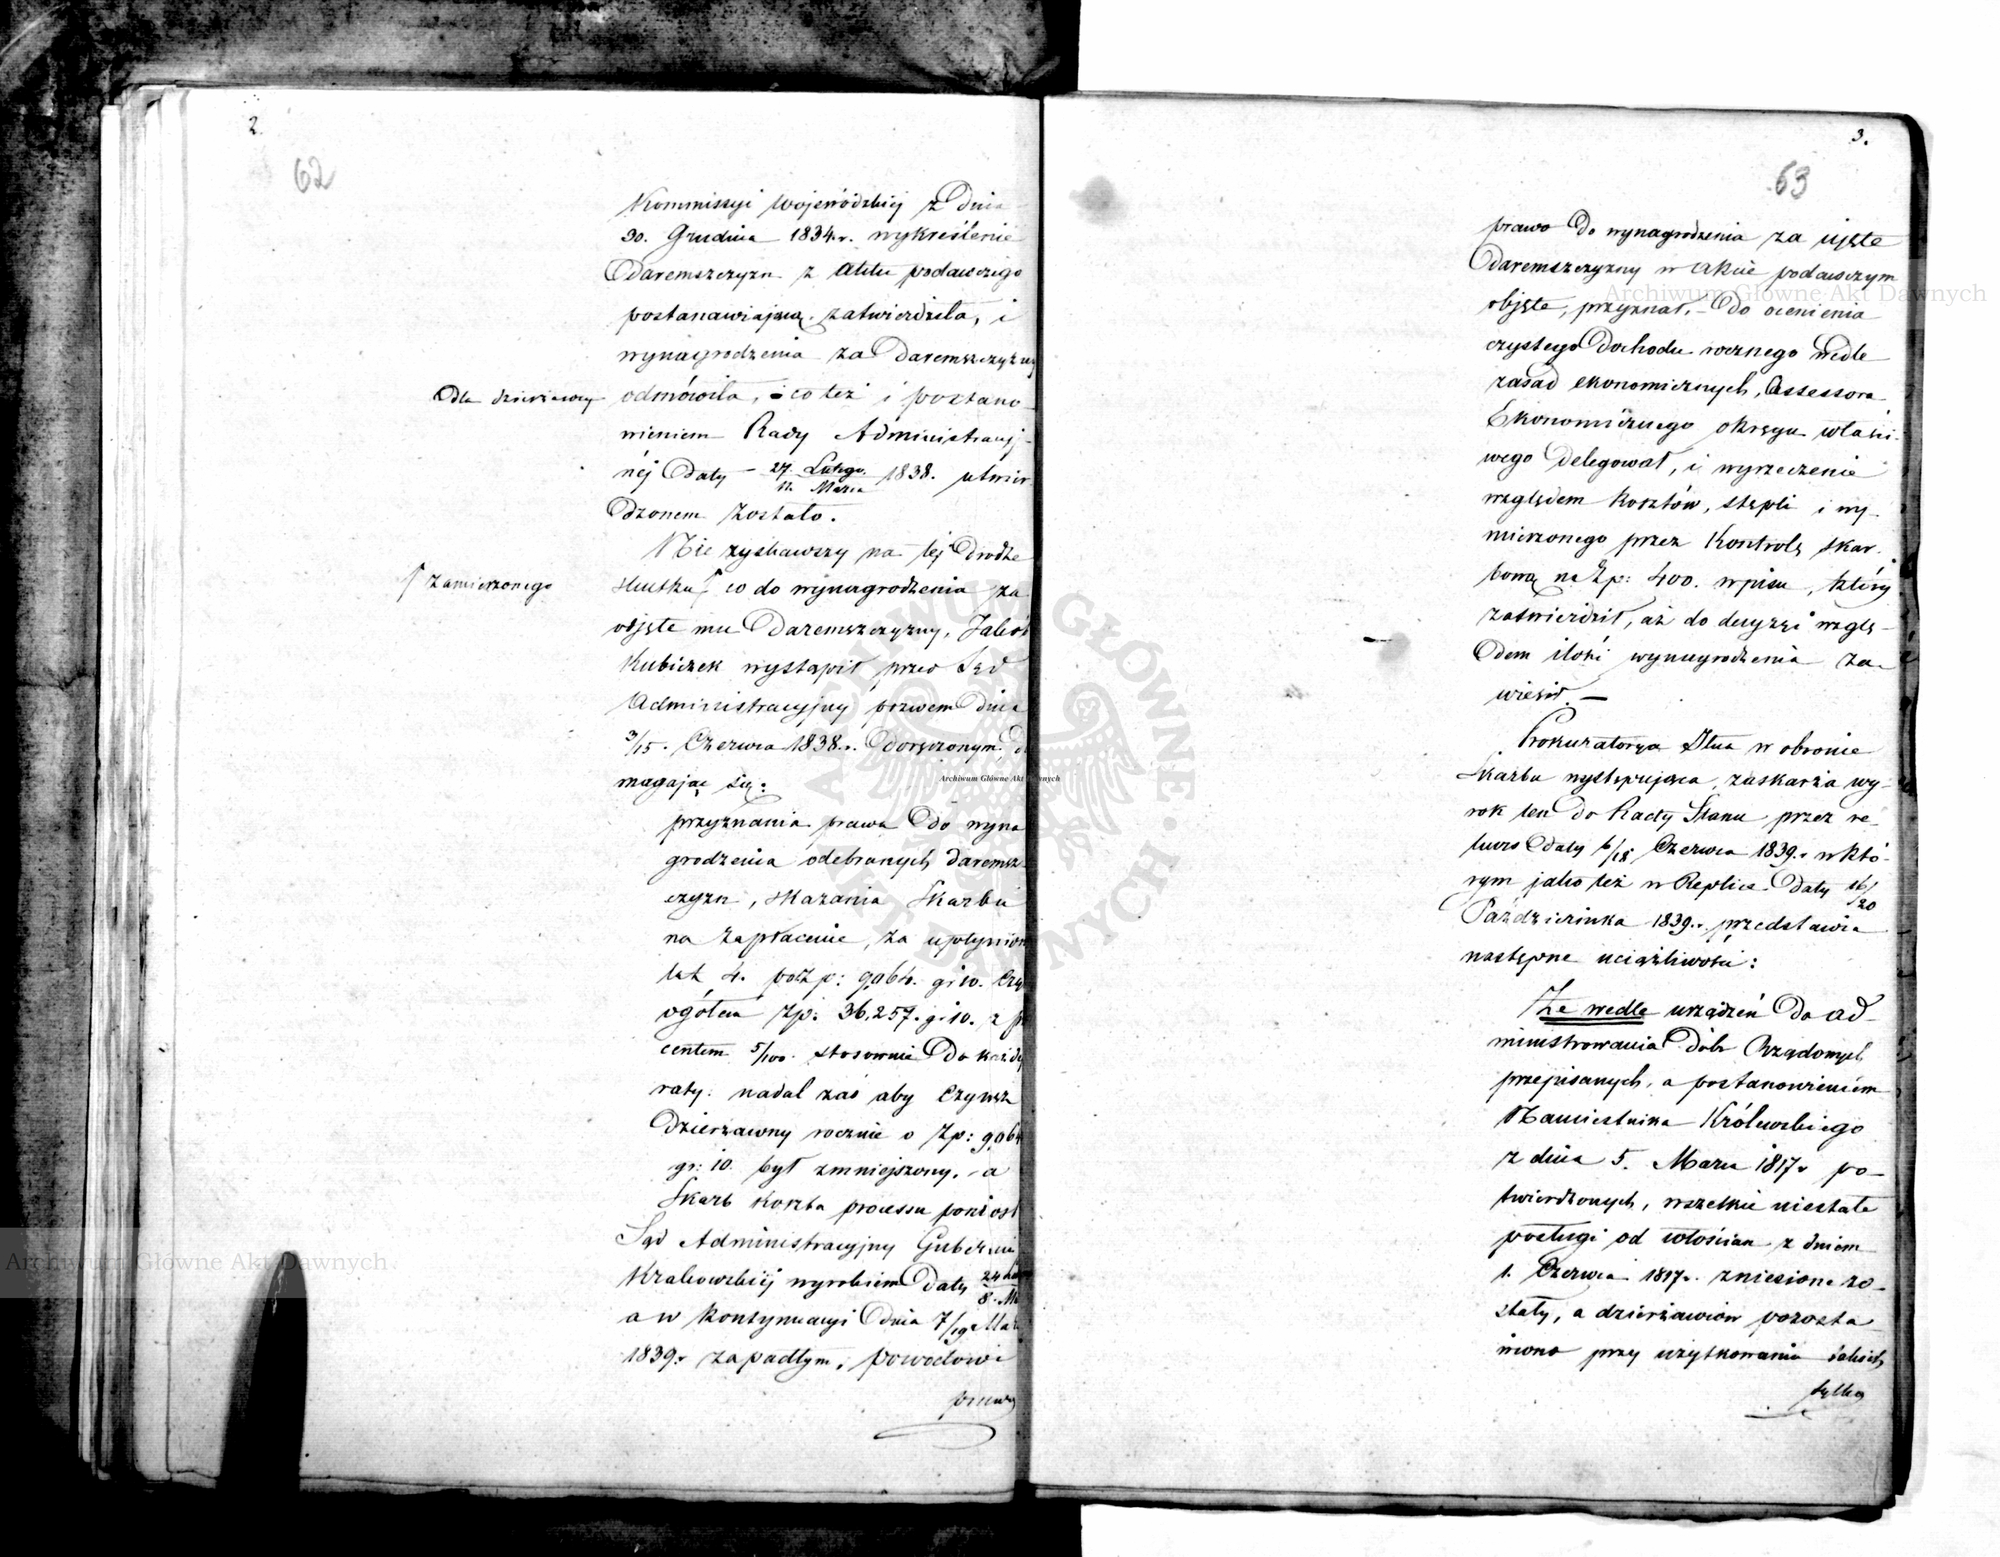 2.
62
Kommissyi Wojewódzkiej z Dnia
30. Grudnia 1834.r. wykreślenie
Daremszczyzn z Aktu podawczego
postanawiającą, zatwierdziła, i
wynagrodzenia za Daremszczyzny
dla dzierżawcy
odmówiła, co też i postano-
wieniem Rady Administracyj-
néj Daty 27. Lutego / 11. Marca 1838. utwier-
dzonem zostało.
Nie zyskawszy na tej drodze
↑ zamierzonego
skutku ↑ co do wynagrodzenia za
odjęte mu Daremszczyzny, Jakób
Kubiczek wystąpił przed Sąd
Administracyjny pozwem Dnia
3/15. Czerwca 1838.r. Doręczonym, do
magając się:
przyznania prawa do wyna
grodzenia odebranych daremsz-
czyzn, skazania Skarbu
na zapłacenie, za upłynion
lat 4. po Zp: 9,064. gr 10. czy
ogółem Zp: 36,257. gr 10. z pr
centem 5/100. stosownie do każdéj
raty: nadal zaś aby Czynsz
Dzierżawny rocznie o Zp: 9,064
gr: 10. był zmniejszony, a
Skarb koszta processu poniósł
Sąd Administracyjny Gubernii
Krakowskiéj wyrokiem Daty 24 / 8.
a w kontynuacyi Dnia 7/19 Marca
1839.r zapadłym, powodowi
prawo
3.
63
prawo do wynagrodzenia za ujęte
Daremszczyzny w Akcie podawczym
objęte, przyznał, – do ocenienia
czystego Dochodu rocznego wedle
zasad ekonomicznych, Assessora
Ekonomicznego okręgu właści-
wego Delegował, i wyrzeczenie
względem kosztów, stępli i wy-
mierzonego przez Kontrolę skar-
bową na Zp: 400. wpisu, który
zatwierdził, aż do decyzyi wzglę-
dem ilości wynagrodzenia za-
wiesił. –
Prokuratorya Jlna w obronie
Skarbu występująca, zaskarża wy-
rok ten do Rady Stanu przez re-
kurs Daty 6/18 Czerwca 1839.r w któ-
rym jako też w Replice Daty /20
Października 1839.r. przedstawia
następne uciążliwości:
Że wedle urządzeń Do ad-
ministrowania Dóbr Rządowych
przepisanych, a postanowieniem
Namiestnika Królewskiego
z dnia 5. Marca 1817.r po-
twierdzonych, wszelkie niestałe
posługi od włościan z dniem
1. Czerwca 1817.r. zniesione zo-
stały, a dzierżawców pozosta
wiono przy użytkowaniu takich
tylko
Archiwum Główne Akt Dawnych
Archiwum Główne Akt Dawnych
Archiwum Główne Akt Dawnych